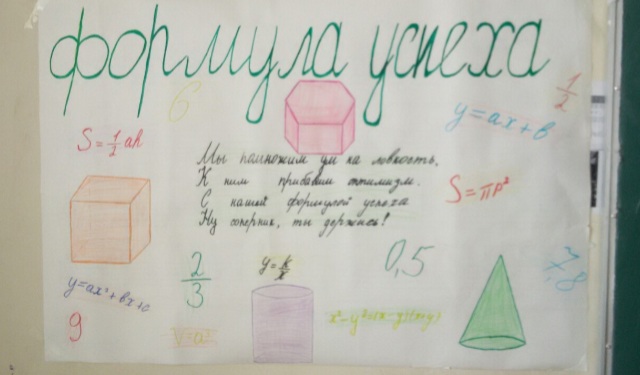 формула успеха
6
1/2
S = 1/2 ah
y = ax + b
Мы помножим ум на ловкость,
К ним прибавим оптимизм.
С нашей формулой успеха
Ну соперник, ты держись!
S = πR²
2/3
y = k/x
0,5
7,8
y = ax² + bx + c
9
V = a³
x² - y² = (x - y)(x + y)